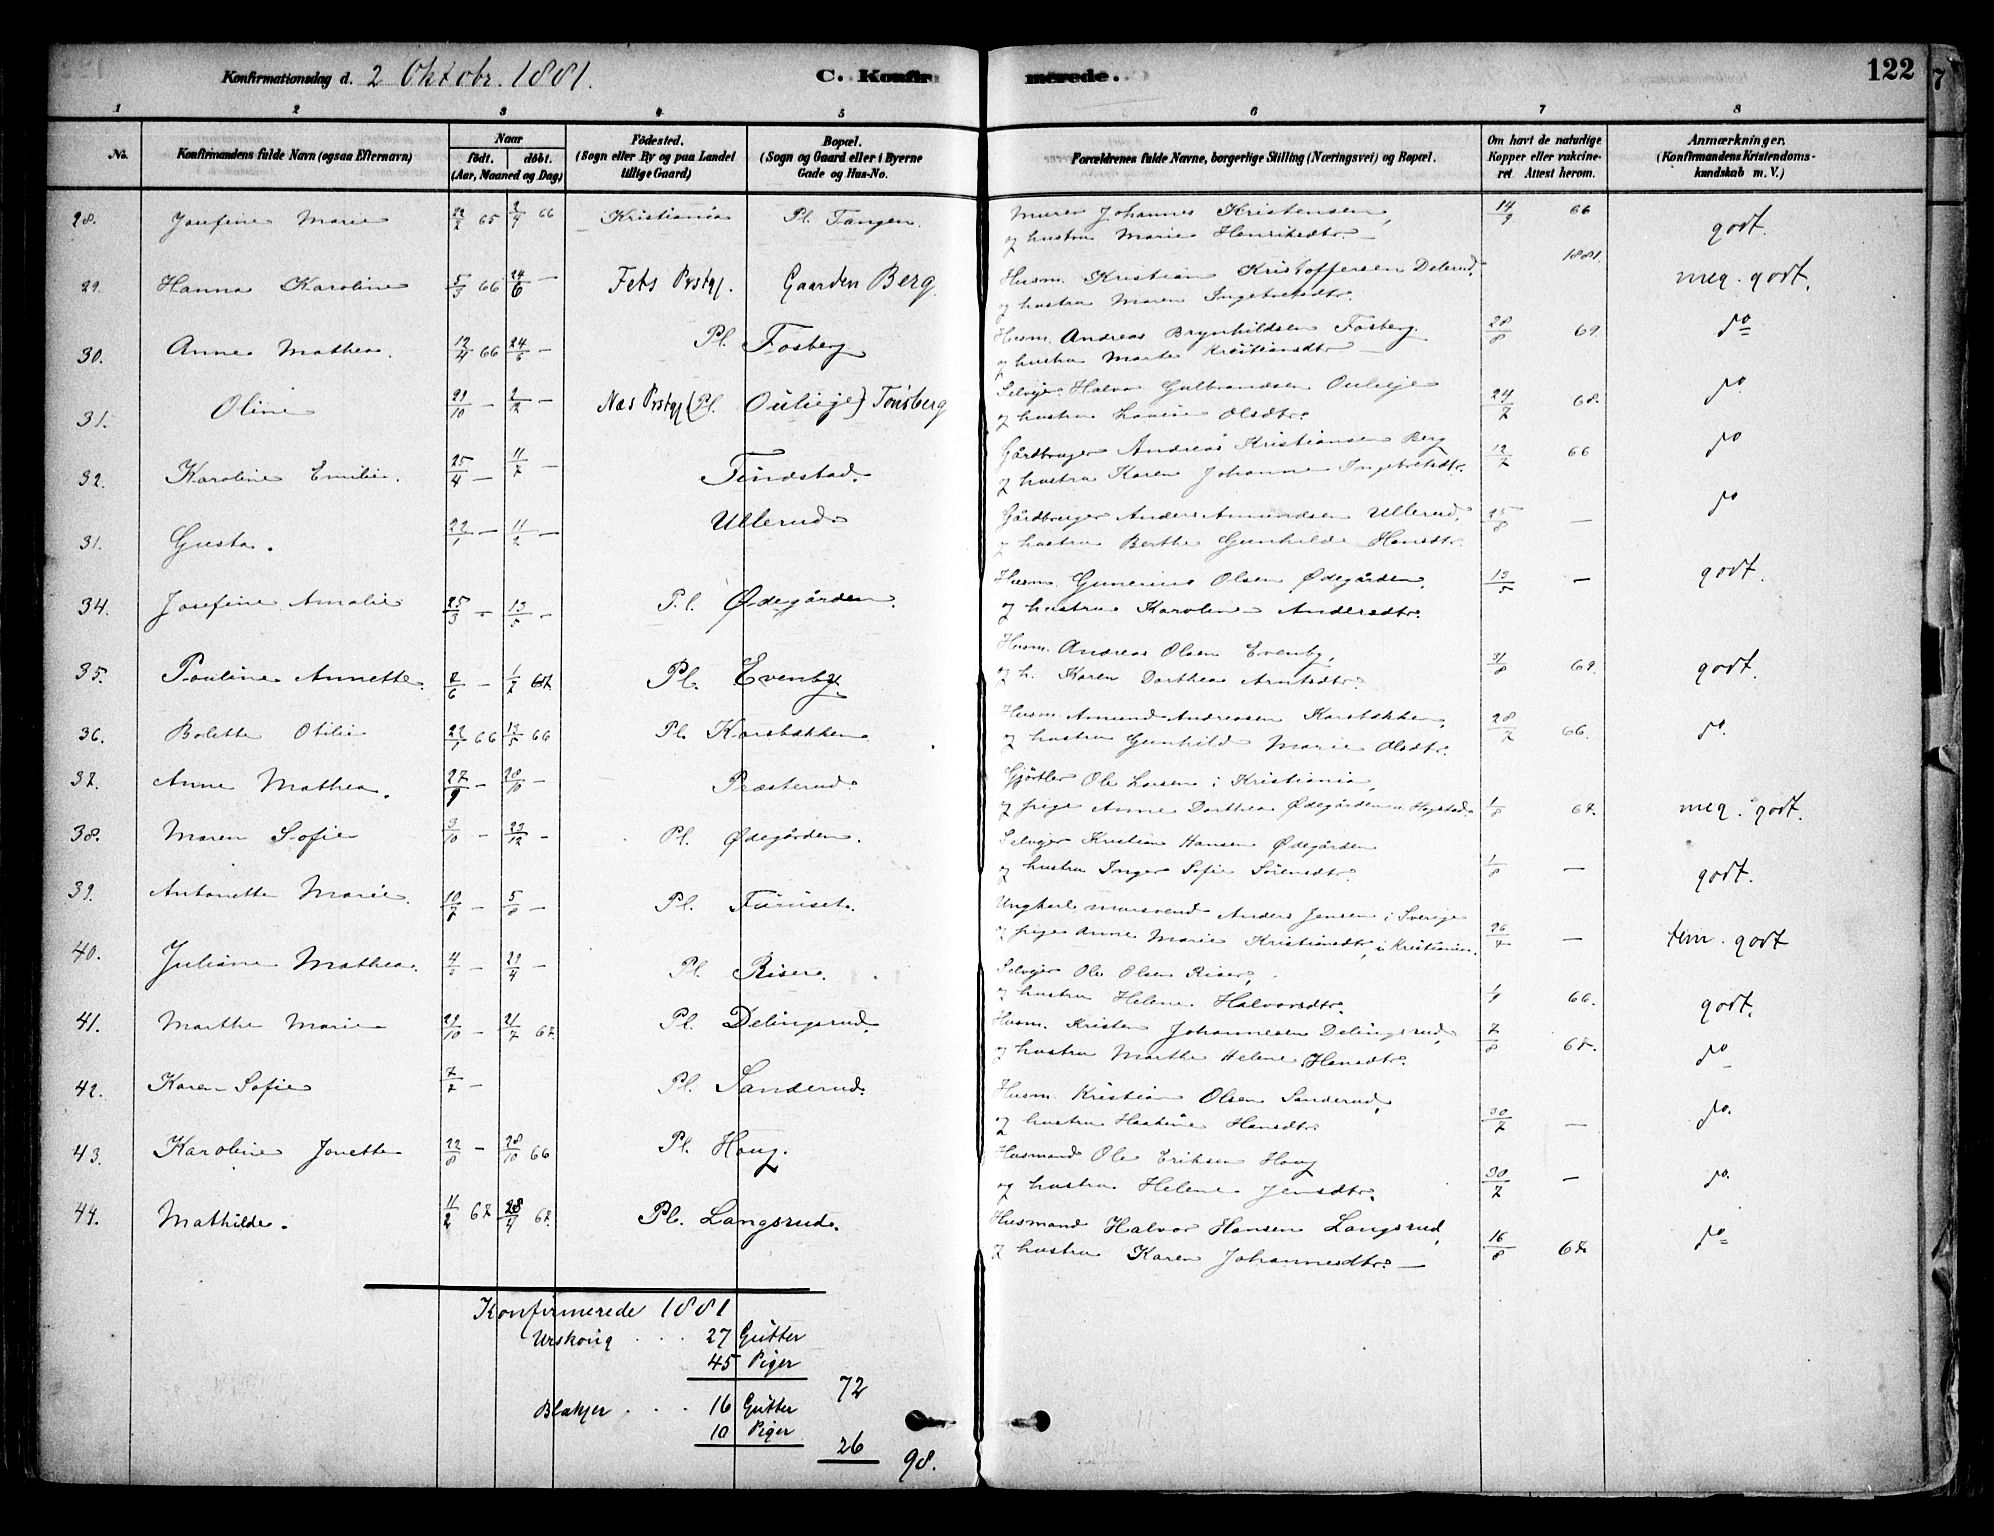 Konfirmationsdag d. 2 Oktobr. 1881.
C. Konfirmerede.
122
1 2 3 4 5 6 7 8
No. Konfirmandens fulde Navn (ogsaa Efternavn)
Naar
født. døbt.
(Aar, Maaned og Dag)
Fødested.
(Sogn eller By og paa Landet
tillige Gaard)
Bopæl.
(Sogn og Gaard eller i Byerne
Gade og Hus-No.
Forældrenes fulde Navne, borgerlige Stilling (Næringsvei) og Bopæl.
Om havt de naturlige
Kopper eller vakcine-
ret. Attest herom.
Anmærkninger.
(Konfirmandens Kristendoms-
kundskab m. V.)
28. Josefine Marie 22/2 65 2/4 66 Kristiania Pl. Tangen. Murer Johannes Kristensen, 14/9 66 godt.
og hustru Marie Henriksdtr.
29. Hanna Karoline 5/3 66 24/6 — Fets Prstgj. Gaarden Berg. Husm. Kristian Kristoffersen Delerud, 1881. meg. godt.
og hustru Maren Ingebretsdtr.
30. Anne Mathea. 12/4 66 24/6 — Pl. Fosberg Husm. Andreas Brynhildsen Fosberg 28/8 69. do
og hustru Marte Kristiansdtr. —
31. Oline 29/10 — 2/12 — Næs Prstgj. (Pl. Oulieje) Tönsberg Selvejer Halvor Gulbrandsen Oulieje 24/7 68. do
og hustru Lovise Olsdtr.
32. Karoline Emilie. 25/4 — 11/7 — Tindstad. Gårdbruger Andreas Kristiansen Berg 12/7 66 do
og hustru Karen Johanne Ingebretsdtr.
31. Gusta. 22/1 — 11/2 — Ullerud Gårdbruger Anders Amundsen Ullerud, 25/8 — do
og hustru Berthe Gunhilde Hansdtr.
34. Josefine Amalie 25/3 — 13/5 — Pl. Ødegården. Husm. Gunerius Olsen Ødegården, 13/5 — godt.
og hustru Karoline Andersdtr.
35. Pouline Annette. 2/6 — 1/7 67 Pl. Evenby. Husm. Andreas Olsen Evenby, 31/8 69. godt.
og h. Karen Dorthea Arntsdtr.
36. Bolette Otilie 22/1 66 13/5 66 Pl. Korsbækken Husm. Amund Andreasen Korsbækken, 28/7 66. do.
og hustru Gunhild Marie Olsdtr.
37. Anne Mathea. 27/9 — 28/10 — Præsterud. Gjørtler Ole Larsen i Kristiania,
og pige Anne Dorthea Ødegården u. Hogstad. 1/8 67. meg. godt.
38. Maren Sofie 3/10 — 23/12 — Pl. Ødegården. Selvejer Kristian Hansen Ødegården
og hustru Inger Sofie Sörensdtr. 1/8 — godt.
39. Antonette Marie. 10/7 — 5/8 — Pl. Furuset. Ungkarl Anders Jensen i Sverige
og pige Anne Marie Kristiansdtr, i Kristiania. 26/7 — tem. godt
40. Juliane Mathea. 4/3 — 29/4 — Pl. Riser. Selvejer Ole Olsen Riser,
og hustru Helene Halvorsdtr. 1/9 66. godt.
41. Marthe Marie 29/10 — 21/7 67. Pl. Delingsrud, Husm. Kristen Johannesen Delingsrud, 7/8 67.
og hustru Marthe Helene Hansdtr. do
42. Karen Sofie 7/7 — Pl. Sanderud. Husm. Kristian Olsen Sanderud,
og hustru Hansdtr. 30/7 — do.
43. Karoline Jonette 22/8 — 28/10 66 Pl. Houg. Husmand Ole Eriksen Houg
og hustru Helene Jensdtr. 30/7 — do.
44. Mathilde. 11/2 67 28/4 67. Pl. Langsrud. Husmand Halvor Hansen Langsrud, do
og hustru Karen Johannesdtr. — 16/8 67
Konfirmerede 1881
Urskoug . . . 27 Gutter
45 Piger
72
Blakjer . . . 16 Gutter
10 Piger
26
98.
7